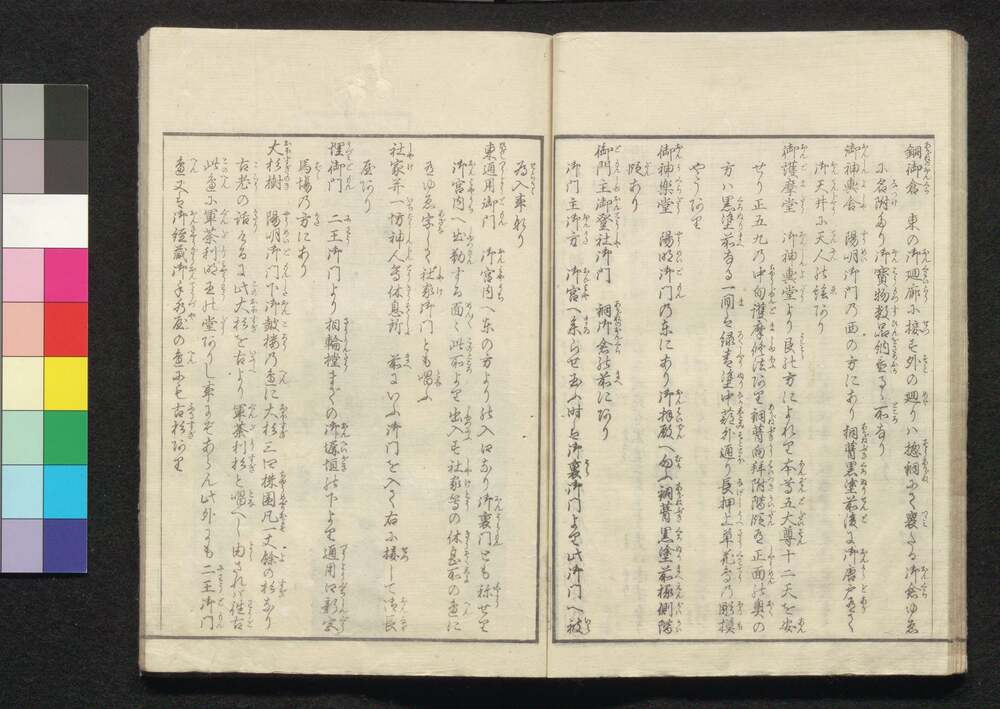 銅御倉 東の御廻廊に接も外の廻りハ惣銅にて裹たる御倉ゆゑ
に名附たり御寳物数品納むる所なり
御神輿舎 陽明御門乃西の方にあり銅葺黒塗前後に御唐戸有て
御天井に天人の絵あり
御護摩堂 御神輿堂より艮の方によれり本尊五大尊十二天を安
せり正五九乃中旬護摩修法あり銅葺向拜附階段有正面の奥の
方ハ黒塗前方る一間は緑青塗中蔀外通り長押上草花等乃彫模
やうあり
御神樂堂 陽明御門乃東にあり御拜殿へ向ふ銅葺黒塗前椽側階
段あり
御門主御登社御門 銅御倉の前にあり
御門主御方 御宮へ参らせ玉ふ時は御裏御門より此御門へ被
為入事なり
東通用御門 御宮内へ東の方よりの入口なり御裏門とも称せり
御宮内へ出勤する面々此所より出入も社家等の休息所の邊に
有ゆゑ字して社家御門とも唱ふ
社家并一坊神人等休息所 前にいふ御門を入て右に接して御長
屋あり
埋御門 二王御門より相輪橖まての御塀垣の下より通用口新宮
馬場の方にあり
大杉樹 陽明御門下御鼓楼乃邊に大杉三四株圍凡一丈餘の杉なり
古老の話るに此大杉を古より軍荼利杉と唱へし由されハ徃古
此邊に軍荼利明王の堂ありし事にてあらん此外にも二王御門
邊又は御經蔵御手水屋の邊にも古杉あり